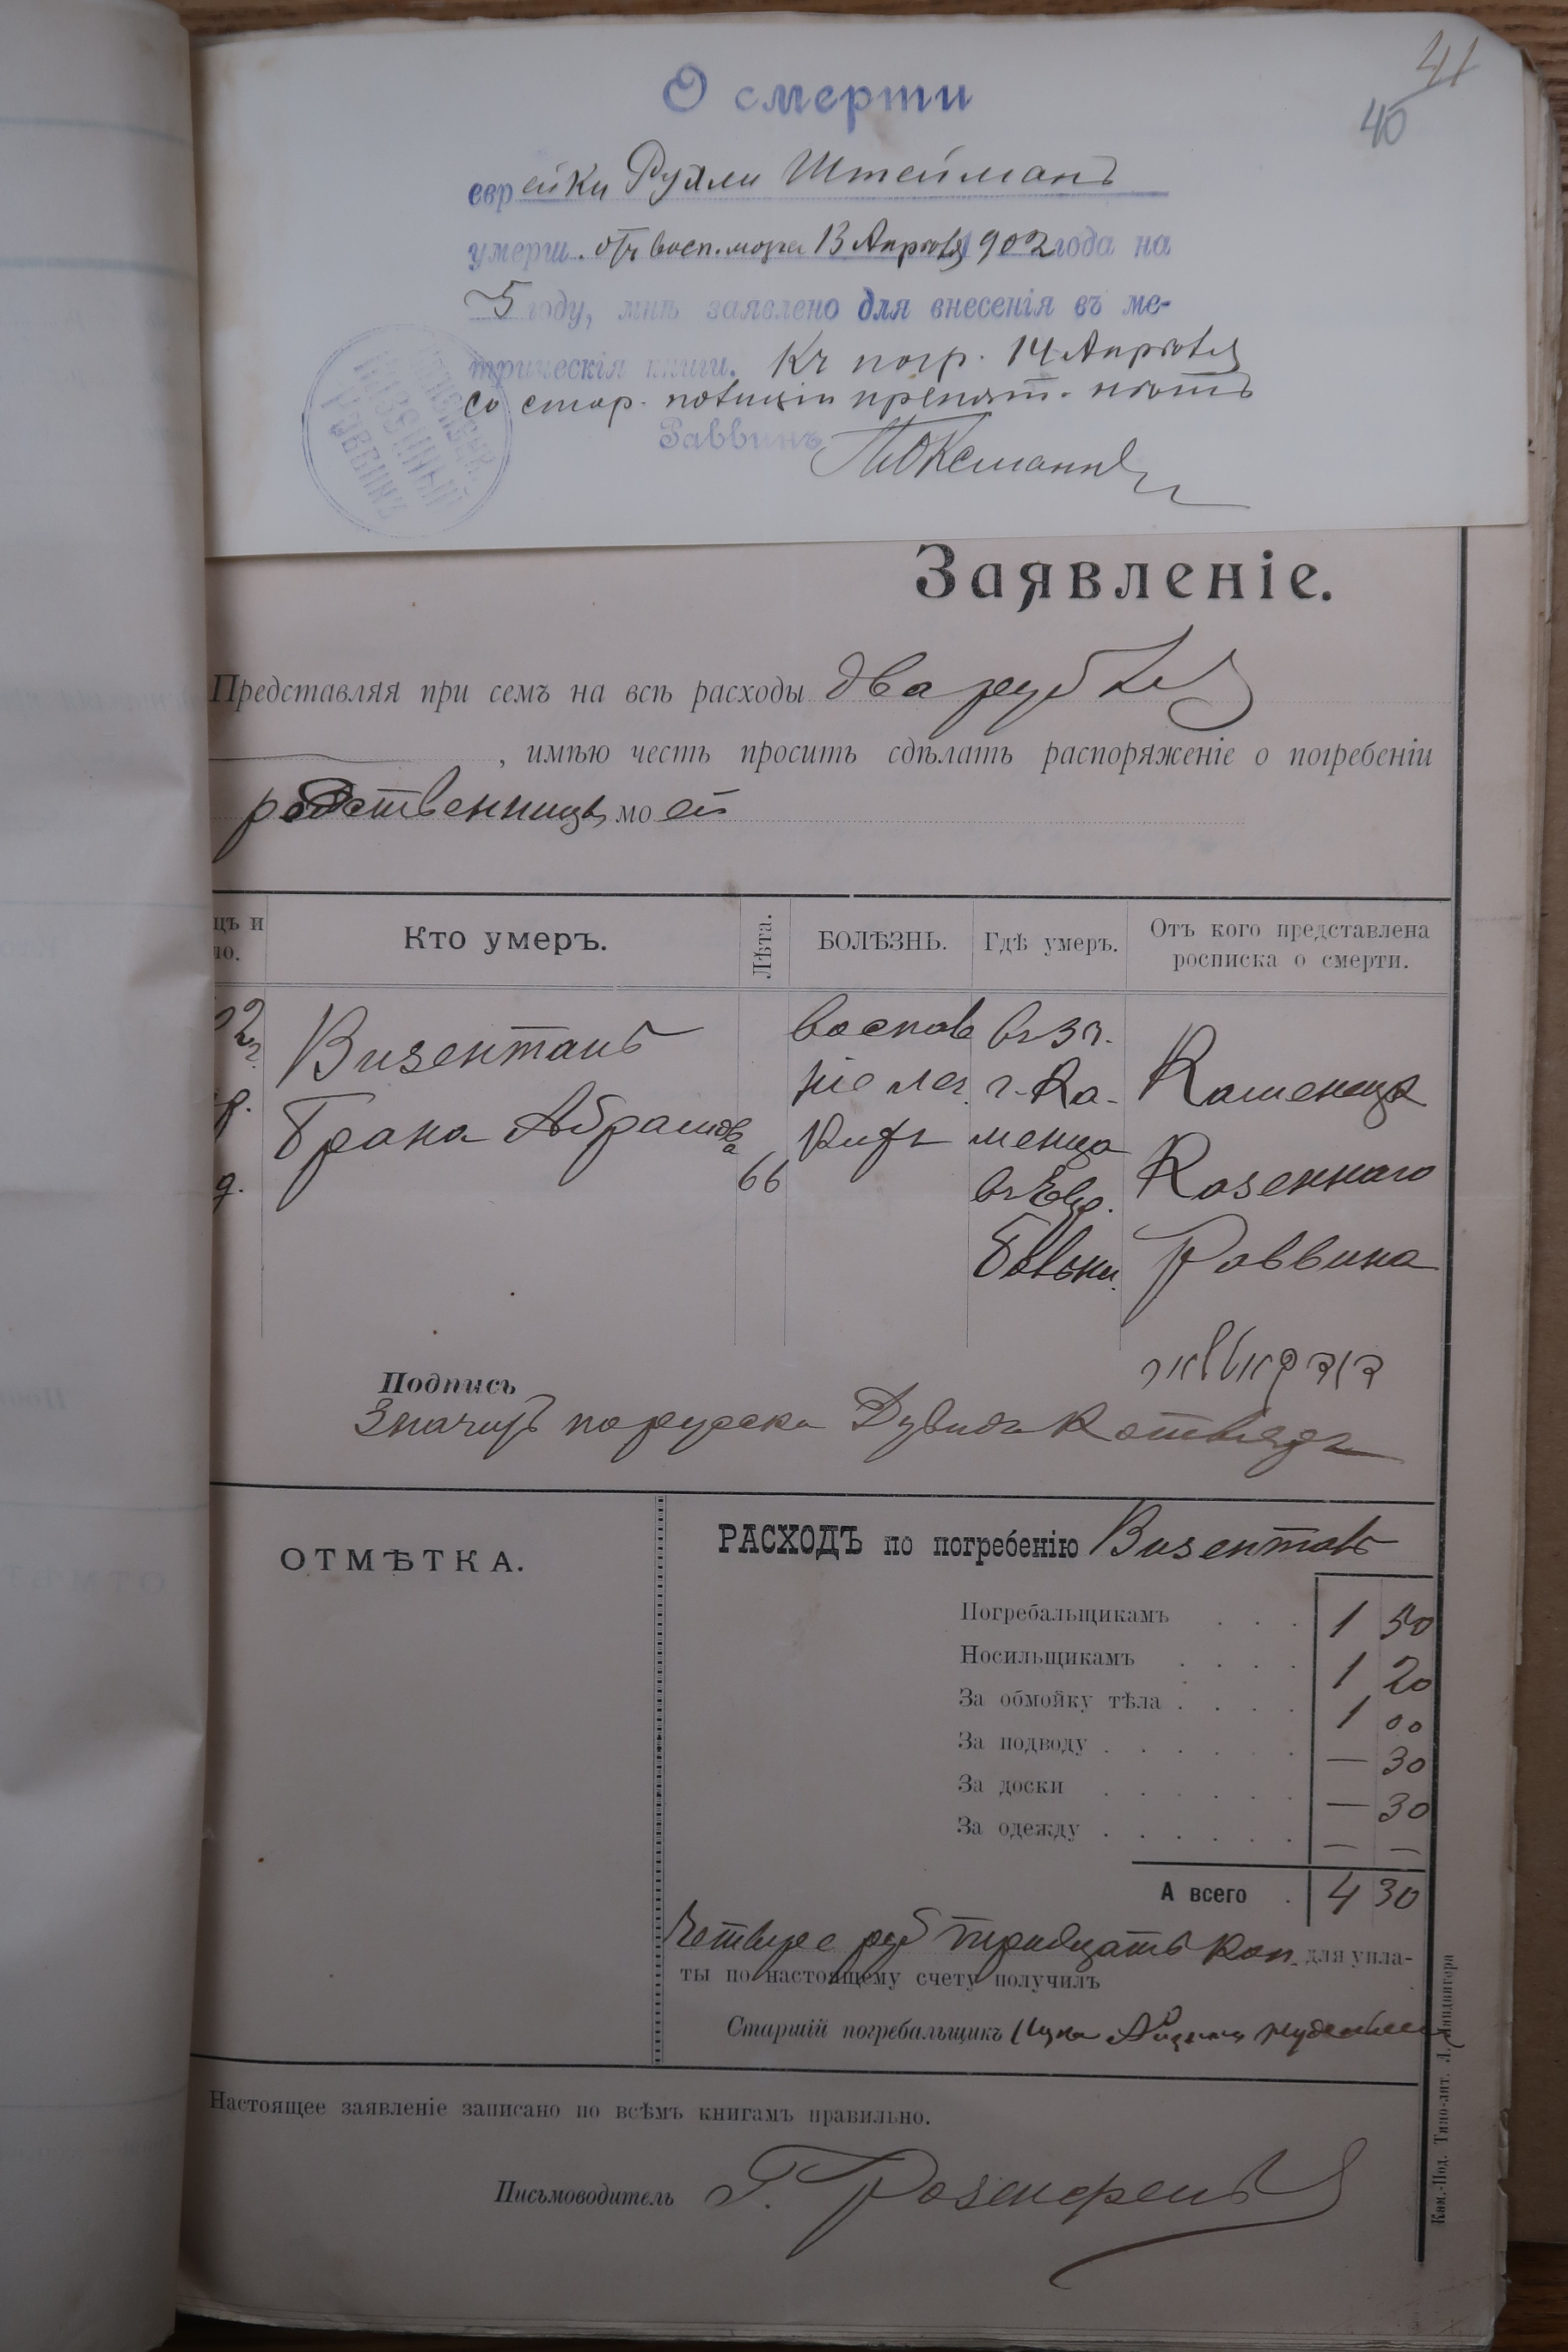 41
40
О смерти
еврейки Рухли Штейманъ
умерш. отъ восп. мозга 13 Апрѣля 1902 года на
5 году, мнѣ заявлено для внесенія въ ме-
трическія книги. Къ погр. 14 Апрѣля
со стор. полиціи препят. нѣтъ
Раввинъ
КАЗЕННЫЙ
РАВВИНЪ
Заявленіе.
Представляя при семъ на всѣ расходы два рубля
, имѣю честь просить сдѣлать распоряженіе о погребеніи
родственницы моей
цъ и
ло.
Кто умеръ.
Лѣта.
БОЛѢЗНЬ.
Гдѣ умеръ.
Отъ кого представлена
росписка о смерти.
2г.
Визентанъ
Брана Абрамова
66
воспале
ніе лег.
кихъ
въ
г. Ка-
менца
въ Евр.
больн.
Каменецк
Казеннаго
Раввина
д.
Подпись
Значитъ по русски Дувидъ
ОТМѢТКА.
РАСХОДЪ по погребенію
Погребальщикамъ . . . 1 50
Носильщикамъ . . . . 1 20
За обмойку тѣла . . . . 1 00
За подводу . . . . . . — 30
За доски . . . . . . — 30
За одежду . . . . . . — —
А всего . 4 30
Четыре руб тридцать коп. для упла-
ты по настоящему счету получилъ
Старшій погребальщикъ
Настоящее заявленіе записано по всѣмъ книгамъ правильно.
Письмоводитель Г. Розенфельд
Кам.-Под. Типо-лит. Л.